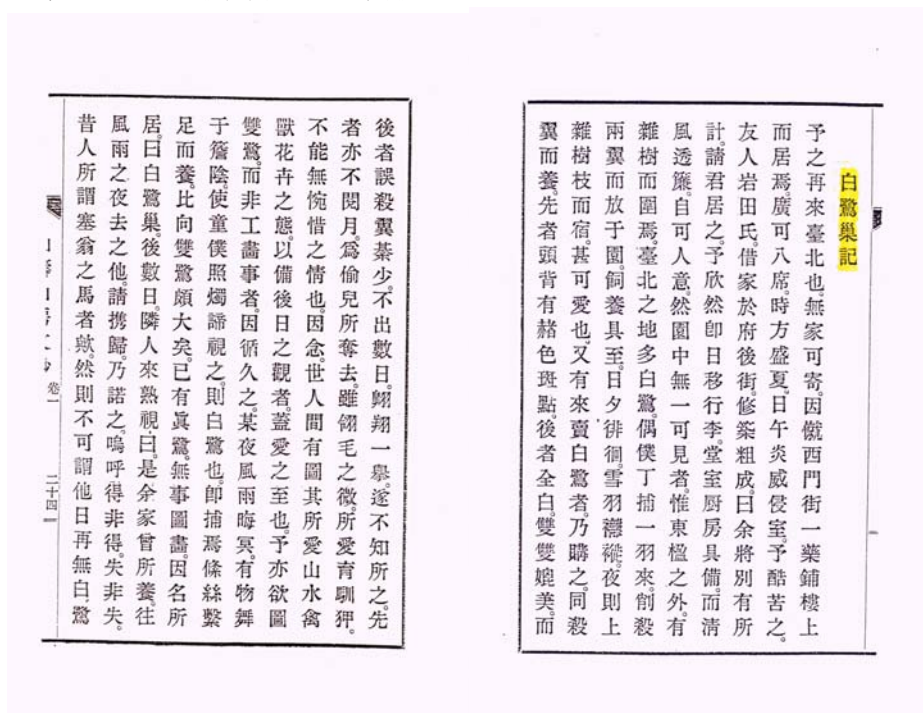 白鷺巢記
予之再來臺北也。無家可寄。因僦西門街一藥鋪樓上
而居焉。廣可八席。時方盛夏。日午炎威侵室。予酷苦之。
友人岩田氏。借家於府後街。修築粗成。曰余將別有所
計。請君居之。予欣然卽日移行李。堂室厨房具備。而清
風透簾。自可人意。然園中無一可見者。惟東楹之外。有
雜樹而圍焉。臺北之地多白鷺。偶僕丁捕一羽來。削殺
兩翼而放于園。飼養具至。日夕徘徊。雪羽襳褷。夜則上
雜樹枝而宿。甚可愛也。又有來賣白鷺者。乃購之。同殺
翼而養。先者頭背有赭色斑點。後者全白。雙雙婉美。而
後者誤殺翼綦少。不出數日。翺翔一擧。遂不知所之。先
者亦不閱月。爲偸兒所奪去。雖翎毛之微。所愛育馴狎。
不能無惋惜之情也。因念。世人間有圖其所愛山水禽
獸花卉之態。以備後日之觀者。蓋愛之至也。予亦欲圖
雙鷺。而非工畵事者。因循久之。某夜風雨晦冥。有物舞
于簷陰。使童僕照燭諦視之。則白鷺也。卽捕焉。絛絲繫
足而養。比向雙鷺頗大矣。已有眞鷺。無事圖畵。因名所
居。曰白鷺巢。後數日。隣人來熟視曰。是余家曾所養。往
風雨之夜去之他。請携歸。乃諾之。嗚呼得非得。失非失。
昔人所謂塞翁之馬者歟。然則不可謂他日再無白鷺
卷一
二十四